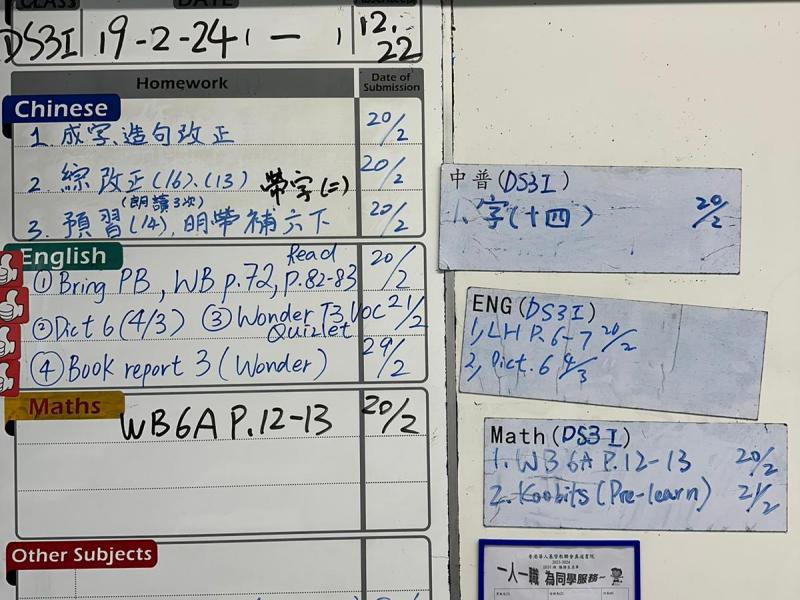 CLASS
DATE
DS3I
19-2-24(一)
12.
22
Homework
Date of Submission
Chinese
1. 成字、造句改正 20/2
2. 綜 改正(16)、(13) 帶字(二) 20/2
(朗讀3次)
3. 預習(14), 明帶補六下 20/2
English
Read
① Bring PB, WB p.72, p.82-83 20/2
② Dict 6 (4/3) ③ Wonder T3 VOC 21/2
Quizlet
④ Book report 3 (Wonder) 29/2
Maths
WB6A P.12-13 20/2
Other Subjects
中普(DS3I)
1. 字(十四) 20/2
ENG(DS3I)
1, LH P.6-7 20/2
2, Dict. 6 4/3
Math(DS3I)
1. WB 6A P.12-13 20/2
2. Koobits (Pre-learn) 21/2
2023-2024
一人一職 為同學服務